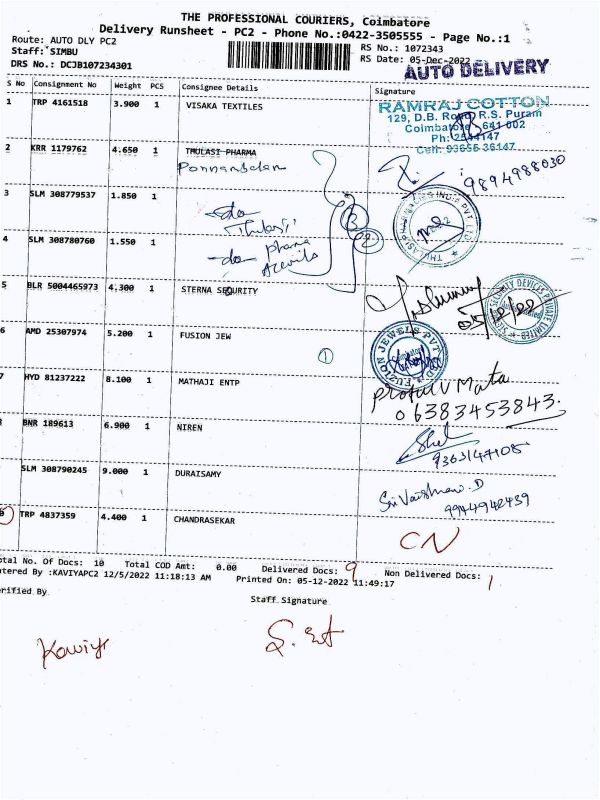 THE PROFESSIONAL COURIERS, Coimbatore
Delivery Runsheet - PC2 - Phone No.:0422-3505555 - Page No.:1
Route: AUTO DLY PC2
Staff: SIMBU
DRS No.: DCJB107234301
RS No.: 1072343
RS Date: 05-Dec-2022
AUTO DELIVERY
S No Consignment No Weight PCS Consignee Details Signature
1 TRP 4161518 3.900 1 VISAKA TEXTILES
RAMRAJ COTTON
129, D.B. Road, R.S. Puram
Coimbatore - 641 002
Ph: 2544147
Cell: 93656 36147
2 KRR 1179762 4.650 1 THULASI PHARMA
9894988030
3 SLM 308779537 1.850 1
-do-
Thulasi
4 SLM 308780760 1.550 1
-do- pharma
5 BLR 5004465973 4.300 1 STERNA SECURITY
6 AMD 25307974 5.200 1 FUSION JEW
1
FUZION JEWELS PVT
7 HYD 81237222 8.100 1 MATHAJI ENTP
Mata
06383453843.
BNR 189613 6.900 1 NIREN
9363147105
SLM 308790245 9.000 1 DURAISAMY
9944942439
TRP 4837359 4.400 1 CHANDRASEKAR
CN
otal No. Of Docs: 10 Total COD Amt: 0.00 Delivered Docs: 9 Non Delivered Docs: 1
ntered By :KAVIYAPC2 12/5/2022 11:18:13 AM Printed On: 05-12-2022 11:49:17
erified By
Staff Signature